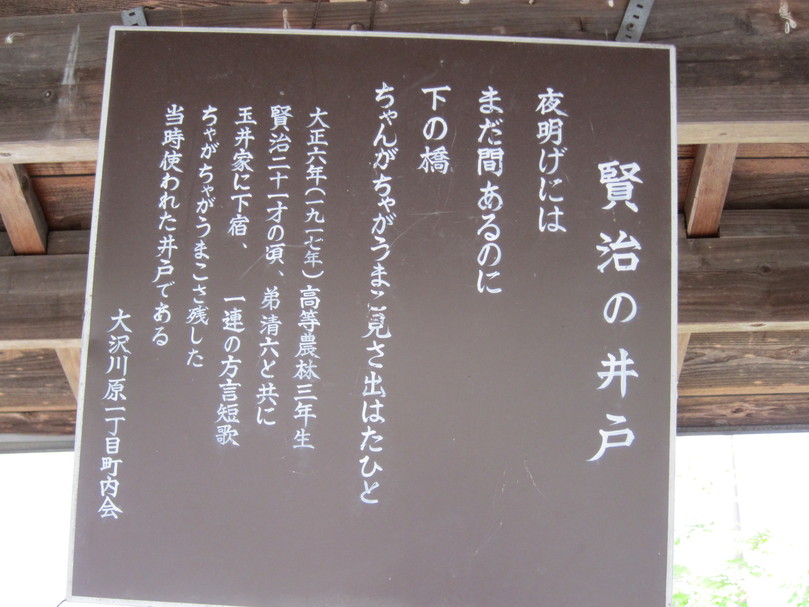 賢治の井戸
夜明げには
まだ間あるのに
下の橋
ちゃんがちゃがうまこ見さ出はたひと
大正六年(一九一七年)高等農林三年生
賢治二十一才の頃、弟清六と共に
玉井家に下宿、一連の方言短歌
ちゃがちゃがうまこさ残した
当時使われた井戸である
大沢川原一丁目町内会